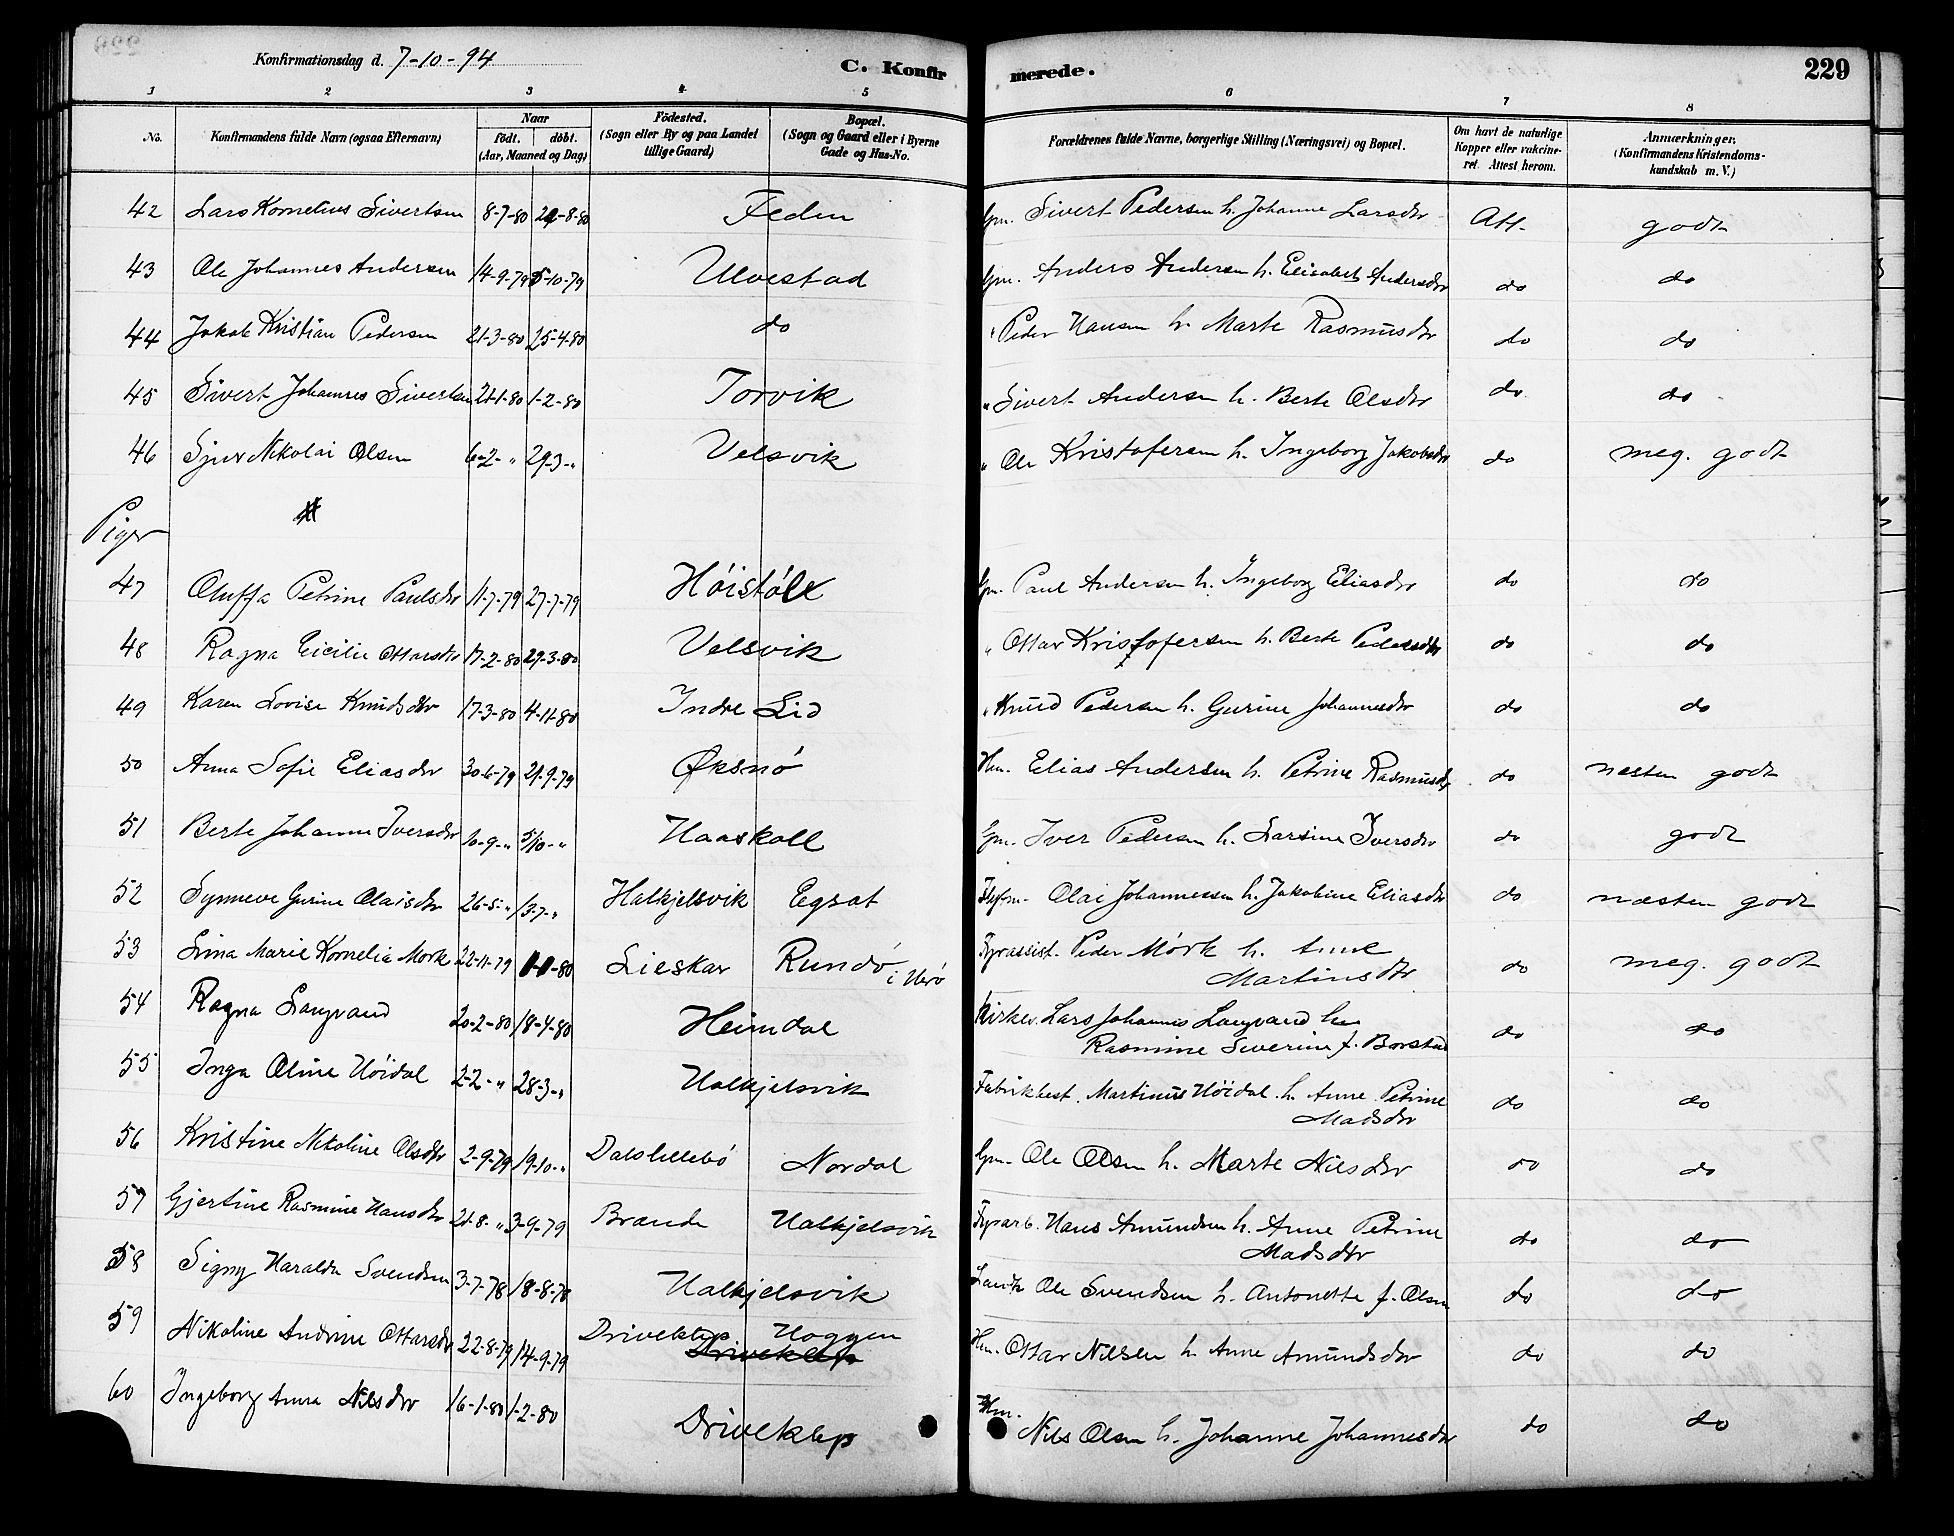 Konfirmationsdag d. 7-10-94
C. Konfirmerede.
229
1 2 3 4 5 6 7 8
No. | Konfirmandens fulde Navn (ogsaa Efternavn) | Naar født. døbt. (Aar, Maaned og Dag) | Fødested. (Sogn eller By og paa Landet tillige Gaard) | Bopæl. (Sogn og Gaard eller i Byerne Gade og Hus-No. | Forældrenes fulde Navne, borgerlige Stilling (Næringsvei) og Bopæl. | Om havt de naturlige Kopper eller vakcineret. Attest herom. | Anmærkninger. (Konfirmandens Kristendomskundskab m. V.)
42 Lars Kornelius Sivertsen 8-7-80 22-8-80 Feden Gm. Sivert Pedersen h. Johanne Larsdtr Att. godt
43 Ole Johannes Andersen 14-9-79 5-10-79 Ulvestad Gm. Anders Andersen h. Elisabet Andersdtr do do
44 Jakob Kristian Pedersen 21-3-80 25-4-80 do " Peder Hansen h. Marte Rasmusdtr do do
45 Sivert Johannes Sivertsen 21-1-80 1-2-80 Torvik " Sivert Andersen h. Berte Olsdtr do do
46 Sjur Nikolai Olsen 6-2-" 29-3-" Velsvik " Ole Kristofersen h. Ingeborg Jakobsdtr do meg. godt
Piger
47 Oluffa Petrine Paulsdtr 11-7-79 27-7-79 Høistøle Gm. Paul Andersen h. Ingeborg Eliasdtr do do
48 Ragna Cicilie Ottarsdtr 17-2-80 29-3-80 Velsvik " Ottar Kristofersen h. Berte Pedersdtr do do
49 Karen Lovise Knudsdtr 17-3-80 4-11-80 Indre Lid " Knud Pedersen h. Gurine Johannesdtr do do
50 Anna Sofie Eliasdtr 30-6-79 21-9-79 Øksnø Hm. Elias Andersen h. Petrine Rasmusdtr do næsten godt
51 Berte Johanne Iversdtr 10-9-" 5/10-" Haaskoll Gm. Iver Pedersen h. Larsine Iversdtr do godt
52 Synneve Gurine Olaisdtr 26-5-" 13-7-" Halkjelsvik Egsæt Olai Johannessen h. Jakobine Eliasdtr do næsten godt
53 Lina Marie Kornelia Mork 22-11-79 1-1-80 Lieskar Rundø i Herø Fyrassist. Peder Mørk h. Anne
Martinsdtr do meg. godt
54 Ragna Langvand 20-2-80 18-4-80 Heimdal Kirkes. Lars Johannes Langvand h.
Rasmine Severine f. Borstad do do
55 Inga Oline Høidal 2-2-" 28-3-" Halkjelsvik Fabrikbest. Martinus Høidal h. Anne Petrine
Madsdtr do do
56 Kristine Nikoline Olsdtr 2-9-79 19-10-" Dalslillebø Nordal Gm. Ole Olsen h. Marte Nilsdtr do do
57 Gjertine Rasmine Hansdtr 21-8-" 3-9-79 Brande Halkjelsvik Hans Amundsen h. Anne Petrine
Madsdtr do do
58 Signy Haralda Svendsen 3-7-78 18-8-78 Halkjelsvik Ole Svendsen h. Antonette f. Olsen do do
59 Nikoline Andrine Ottarsdtr 22-8-79 14-9-79 Driveklep Haggen Hm. Ottar Nilsen h. Anne Amundsdtr do do
Driveklep
60 Ingeborg Anna Nilsdtr 16-1-80 1-2-80 Driveklep Hm. Nils Olsen h. Johanne Johannesdtr do do